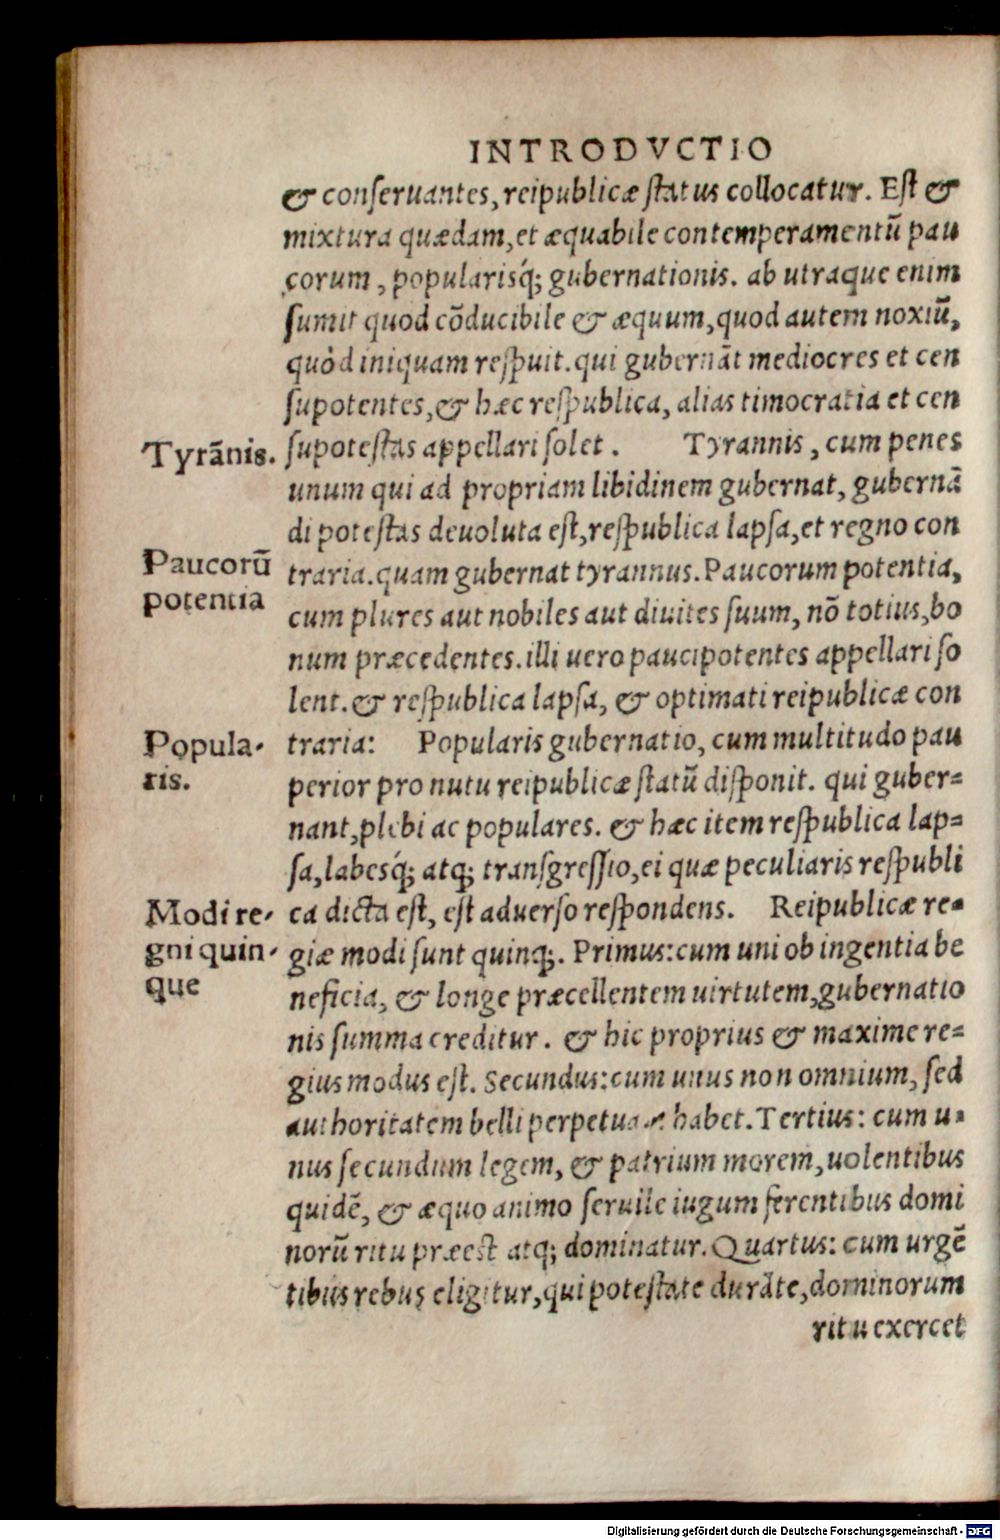 INTRODVCTIO
& conſeruantes, reipublicæ ſtatus collocatur. Eſt &
mixtura quædam, et æquabile contemperamentũ pau
corum, popularisq́; gubernationis. ab utraque enim
ſumit quod cõducibile & æquum, quod autem noxiũ,
quòd iniquam reſpuit. qui gubernãt mediocres et cen
ſupotentes, & hæc reſpublica, alias timocratia et cen
Tyrãnis.
ſupoteſtas appellari ſolet. Tyrannis, cum penes
unum qui ad propriam libidinem gubernat, gubernã
di poteſtas deuoluta eſt, reſpublica lapſa, et regno con
Paucorũ
potentia
traria. quam gubernat tyrannus. Paucorum potentia,
cum plures aut nobiles aut diuites ſuum, nõ totius, bo
num præcedentes. illi uero paucipotentes appellari ſo
lent. & reſpublica lapſa, & optimati reipublicæ con
Popula-
ris.
traria: Popularis gubernatio, cum multitudo pau
perior pro nutu reipublicæ ſtatũ diſponit. qui guber=
nant, plebi ac populares. & hæc item reſpublica lap=
ſa, labesq́; atq; tranſgreſſio, ei quæ peculiaris reſpubli
Modi re-
gni quin-
que
ca dicta eſt, eſt aduerſo reſpondens. Reipublicæ re=
giæ modi ſunt quinq;. Primus: cum uni ob ingentia be
neficia, & longe præcellentem uirtutem, gubernatio
nis ſumma creditur. & hic proprius & maxime re=
gius modus eſt. Secundus: cum unus non omnium, ſed
authoritatem belli habet. Tertius: cum u=
nus ſecundum legem, & patrium morem, uolentibus
quidẽ, & æquo animo ſeruile iugum ferentibus domi
norũ ritu præeſt atq; dominatur. Quartus: cum urgẽ
tibus rebus eligitur, qui poteſtate durãte, dominorum
ritu exercet
Digitalisierung gefördert durch die Deutsche Forschungsgemeinschaft - DFG